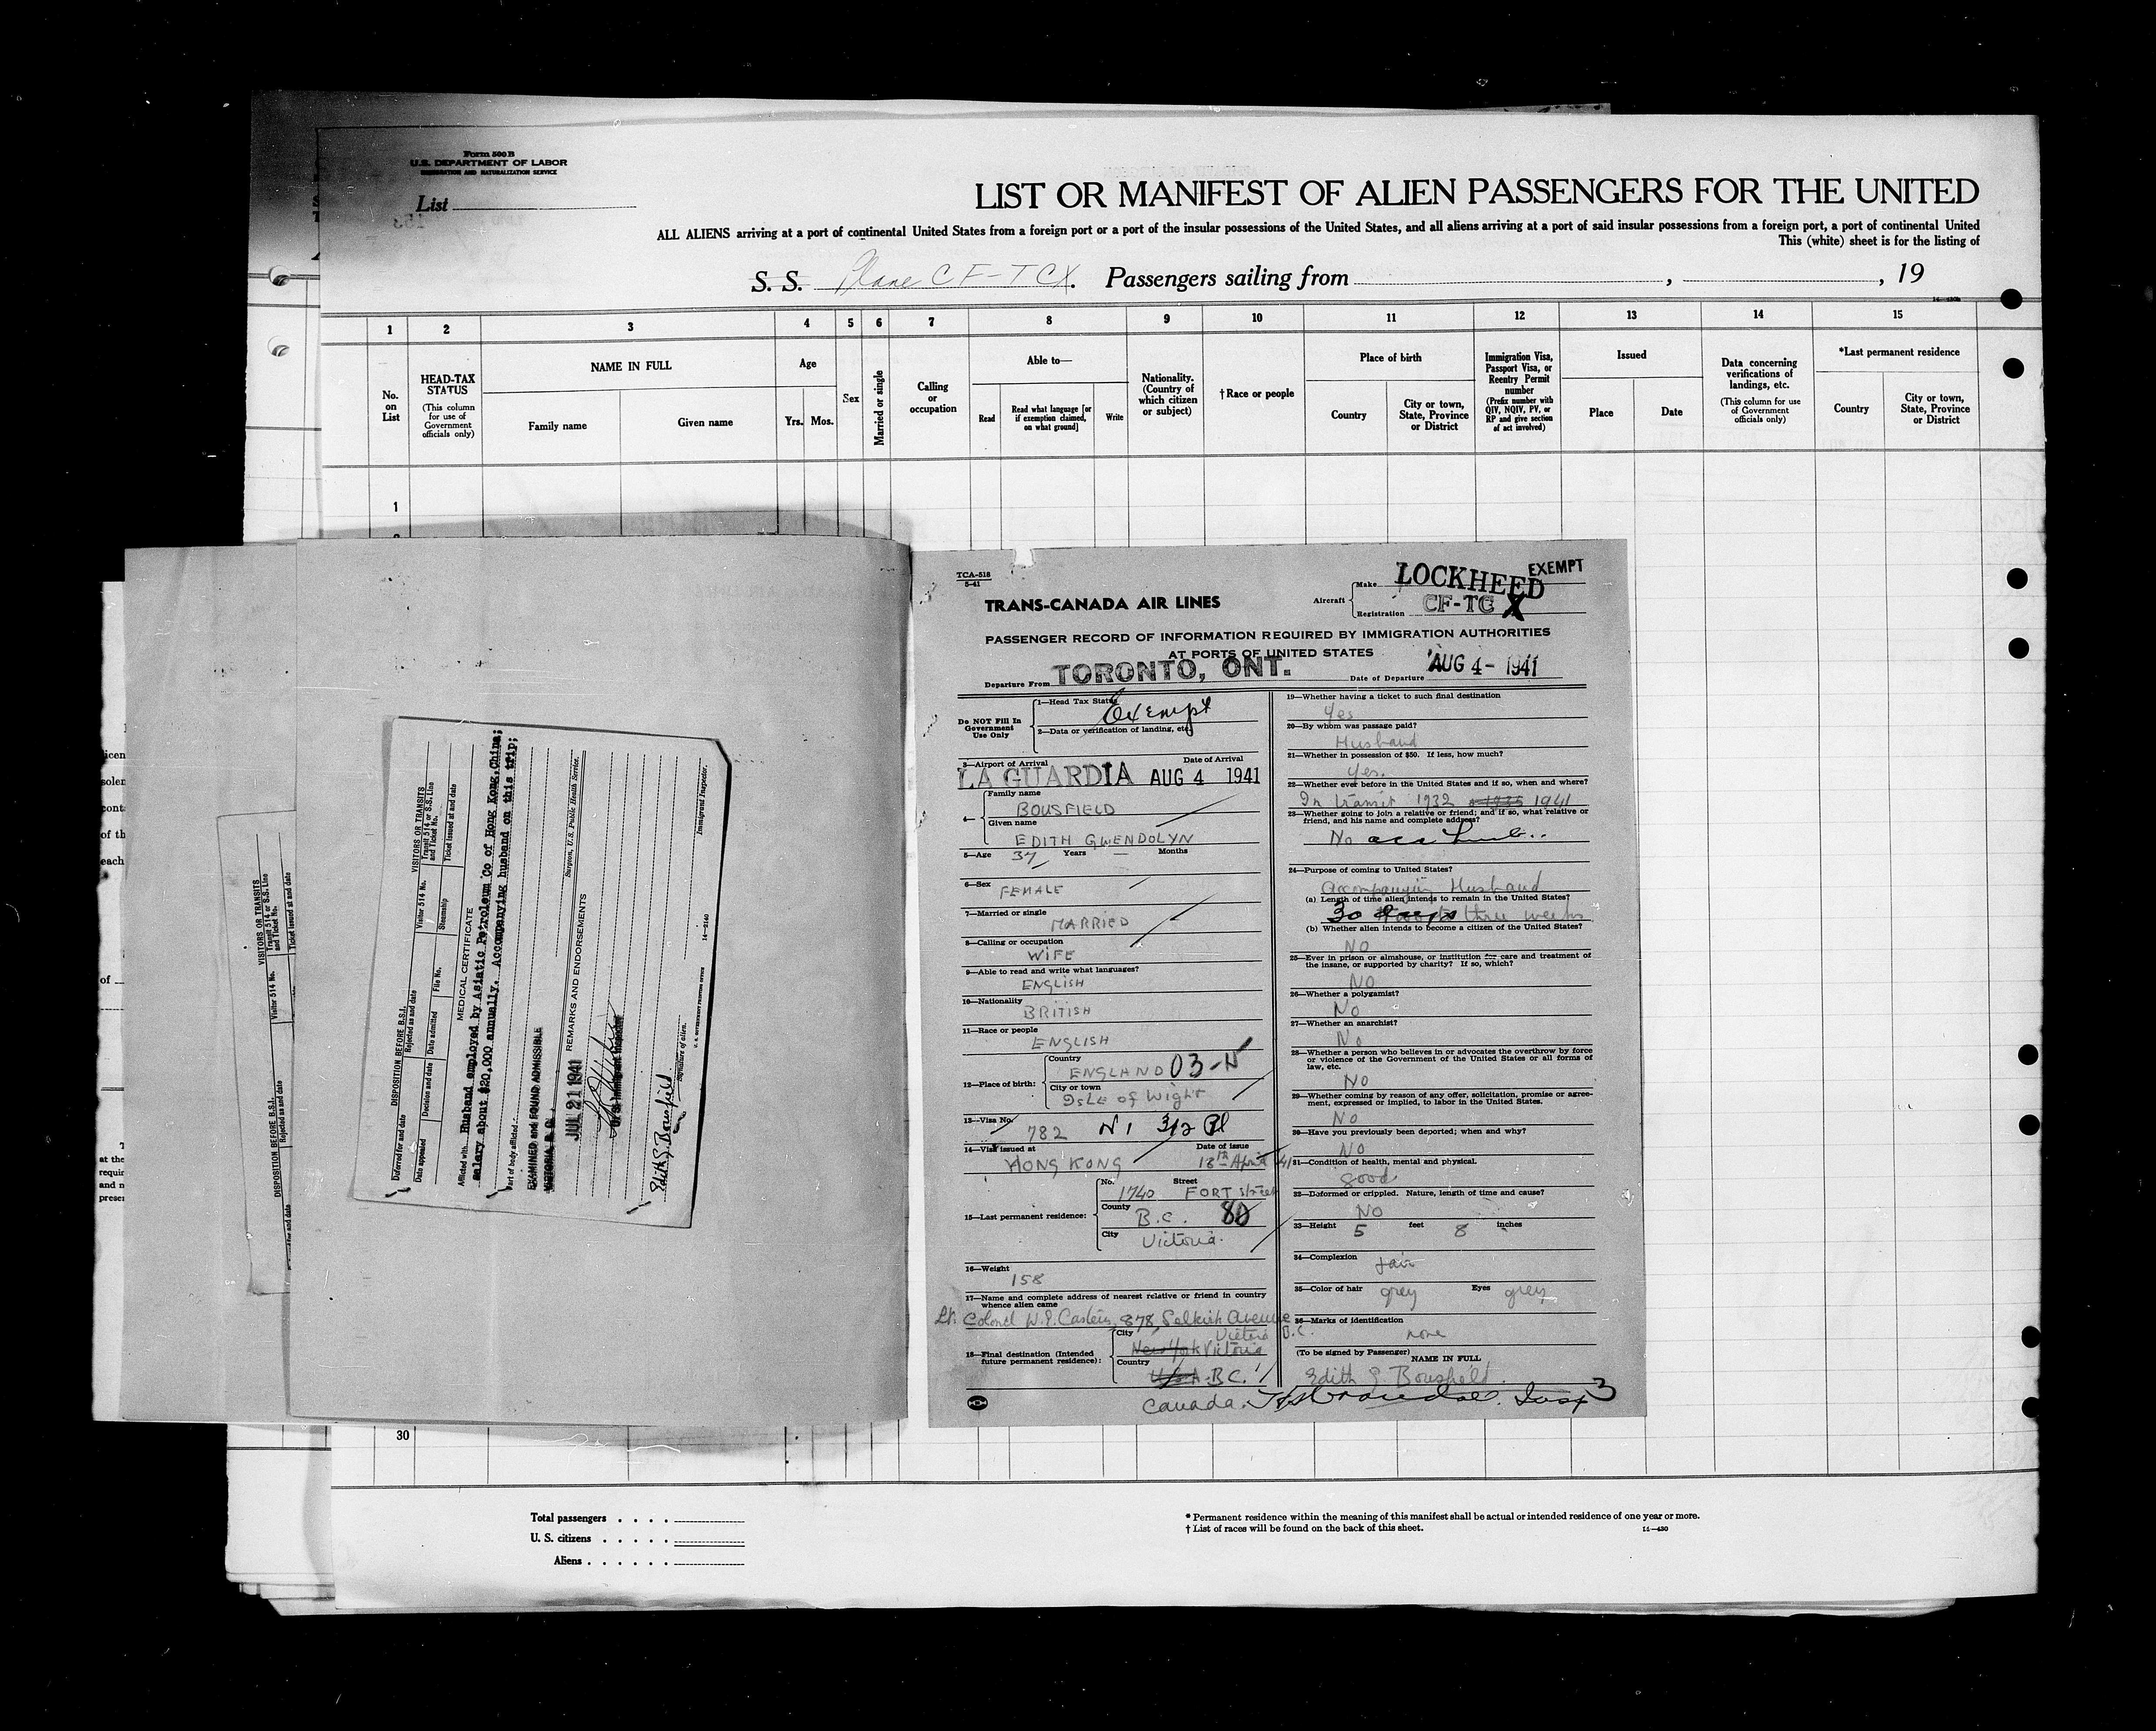 Form 500 B
U.S. DEPARTMENT OF LABOR
IMMIGRATION AND NATURALIZATION SERVICE
List
LIST OR MANIFEST OF ALIEN PASSENGERS FOR THE UNITED
ALL ALIENS arriving at a port of continental United States from a foreign port or a port of the insular possessions of the United States, and all aliens arriving at a port of said insular possessions from a foreign port, a port of continental United
This (white) sheet is for the listing of
S. S. Plane CF-TCX. Passengers sailing from , , 19
1 2 3 4 5 6 7 8 9 10 11 12 13 14 15
No. on List
HEAD-TAX STATUS
(This column for use of Government officials only)
NAME IN FULL
Family name Given name
Age
Yrs. Mos.
Sex
Married or single
Calling or occupation
Able to—
Read
Read what language [or if exemption claimed, on what ground]
Write
Nationality. (Country of which citizen or subject)
†Race or people
Place of birth
Country
City or town, State, Province or District
Immigration Visa, Passport Visa, or Reentry Permit number
(Prefix number with QIV, NQIV, PV, or RP and give section of act involved)
Issued
Place Date
Data concerning verifications of landings, etc.
(This column for use of Government officials only)
*Last permanent residence
Country
City or town, State, Province or District
1
30
Total passengers
U. S. citizens
Aliens
* Permanent residence within the meaning of this manifest shall be actual or intended residence of one year or more.
† List of races will be found on the back of this sheet.
14—430
DISPOSITION BEFORE B.S.I.
VISITORS OR TRANSITS
Deferred for and date
Rejected as and date
Visitor 514 No.
Transit 514 or S.S. Line and Ticket No.
Date appealed
Decision and date
Date admitted
File No.
Steamship
Ticket issued at and date
MEDICAL CERTIFICATE
Afflicted with Husband employed by Asiatic Petroleum Co of Hong Kong,China;
salary about $20,000 annually. Accompanying husband on this trip;
Part of body afflicted
EXAMINED and FOUND ADMISSIBLE
VICTORIA B. C.
Surgeon, U.S. Public Health Service.
REMARKS AND ENDORSEMENTS
JUL 21 1941
U. S. Immigrant Inspector
Edith G. Bousfield
Signature of alien.
Immigrant Inspector.
U. S. GOVERNMENT PRINTING OFFICE 14—2140
DISPOSITION BEFORE B.S.I.
VISITORS OR TRANSITS
Rejected as and date
Visitor 514 No.
Transit 514 or S.S. Line and Ticket No.
Ticket issued at and date
TCA-518
5-41
TRANS-CANADA AIR LINES
Aircraft
Make LOCKHEED
EXEMPT
Registration CF-TC X
PASSENGER RECORD OF INFORMATION REQUIRED BY IMMIGRATION AUTHORITIES
AT PORTS OF UNITED STATES
Departure From TORONTO, ONT. Date of Departure AUG 4 - 1941
Do NOT Fill In
Government
Use Only
1—Head Tax Status Exempt
2—Data or verification of landing, etc.
3—Airport of Arrival Date of Arrival
LA GUARDIA AUG 4 1941
4—
Family name
BOUSFIELD
Given name
EDITH GWENDOLYN
5—Age 37 Years — Months
6—Sex
FEMALE
7—Married or single
MARRIED
8—Calling or occupation
WIFE
9—Able to read and write what languages?
ENGLISH
10—Nationality
BRITISH
11—Race or people
ENGLISH
12—Place of birth:
Country
ENGLAND 03-N
City or town
Isle of Wight
13—Visa No.
782
14—Visa issued at Date of issue
HONG KONG 18th April 41
15—Last permanent residence:
No. Street
1740 FORT Street
County
B.C. 80
City
Victoria.
16—Weight
158
17—Name and complete address of nearest relative or friend in country
whence alien came
Lt. Colonel 878, Selkirk Avenue
Victoria B.C.
18—Final destination (Intended
future permanent residence):
City
New York Victoria
Country
U.S.A. B.C.
Canada.
19—Whether having a ticket to such final destination
Yes
20—By whom was passage paid?
Husband
21—Whether in possession of $50. If less, how much?
Yes.
22—Whether ever before in the United States and if so, when and where?
In transit 1932 1941
23—Whether going to join a relative or friend; and if so, what relative or
friend, and his name and complete address?
No
24—Purpose of coming to United States?
Accompanying Husband
(a) Length of time alien intends to remain in the United States?
30 days three weeks
(b) Whether alien intends to become a citizen of the United States?
NO
25—Ever in prison or almshouse, or institution for care and treatment of
the insane, or supported by charity? If so, which?
NO
26—Whether a polygamist?
No
27—Whether an anarchist?
No
28—Whether a person who believes in or advocates the overthrow by force
or violence of the Government of the United States or all forms of
law, etc.
NO
29—Whether coming by reason of any offer, solicitation, promise or agree-
ment, expressed or implied, to labor in the United States.
NO
30—Have you previously been deported; when and why?
NO
31—Condition of health, mental and physical.
Good
32—Deformed or crippled. Nature, length of time and cause?
NO
33—Height 5 feet 8 inches
34—Complexion
fair
35—Color of hair grey Eyes grey
36—Marks of identification
none
(To be signed by Passenger)
NAME IN FULL
Edith G. Bousfield.
3